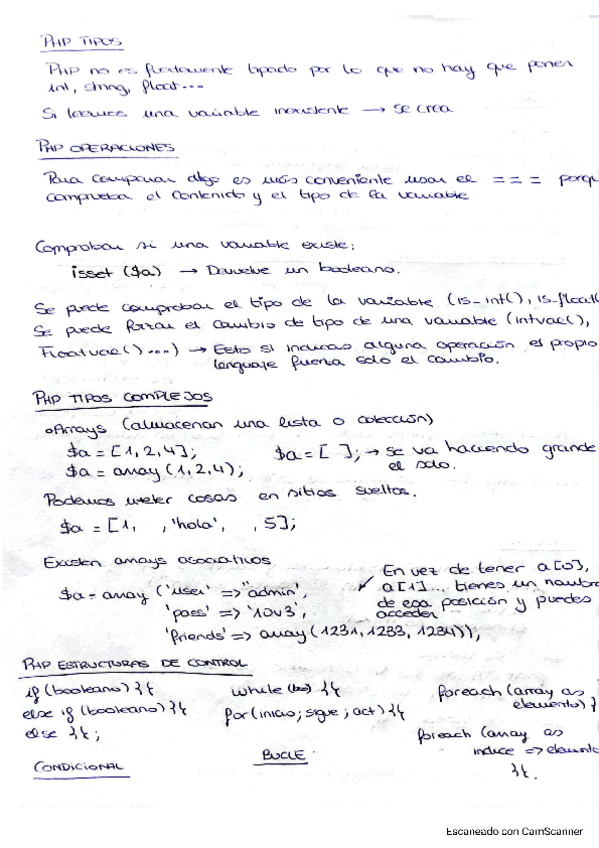 PHP TIPOS
PHP no es fuertemente tipado por lo que no hay que poner
int, string, float...
Si leemos una variable inexistente → se crea
PHP OPERACIONES
Para comparar algo es más conveniente usar el === porqu
comprueba el contenido y el tipo de la variable
Comprobar si una variable existe:
isset ($a) → Devuelve un booleano.
Se puede comprobar el tipo de la variable (is_int(), is_float(
Se puede forzar el cambio de tipo de una variable (intval(),
Floatval()...) → Esto si incluyes alguna operación el propio
lenguaje fuerza solo el cambio.
PHP TIPOS COMPLEJOS
Arrays (almacenan una lista o colección)
$a = [1,2,4]; $a = [ ]; → se va haciendo grande
$a = array (1,2,4); el solo.
Podemos meter cosas en sitios sueltos.
$a = [1, , 'hola', , 5];
Existen arrays asociativos
En vez de tener a[0],
$a = array ('user' => "admin', a[1]... tienes un nombre
'pass' => '10v3', de esa posición y puedes
acceder
'friends' => array (1231, 1233, 1234));
PHP ESTRUCTURAS DE CONTROL
if (booleano) }{ while (boo) }{ foreach (array as
else if (booleano) }{ for (inicio; sigue; act) }{ elemento) }
else }{; foreach (array as
BUCLE indice => elemento
CONDICIONAL }{.
Escaneado con CamScanner